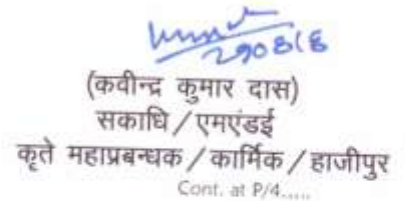 290818
(कवीन्द्र कुमार दास)
सकाधि/एमएंडई
कृते महाप्रबन्धक/कार्मिक/हाजीपुर
Cont. at P/4.....